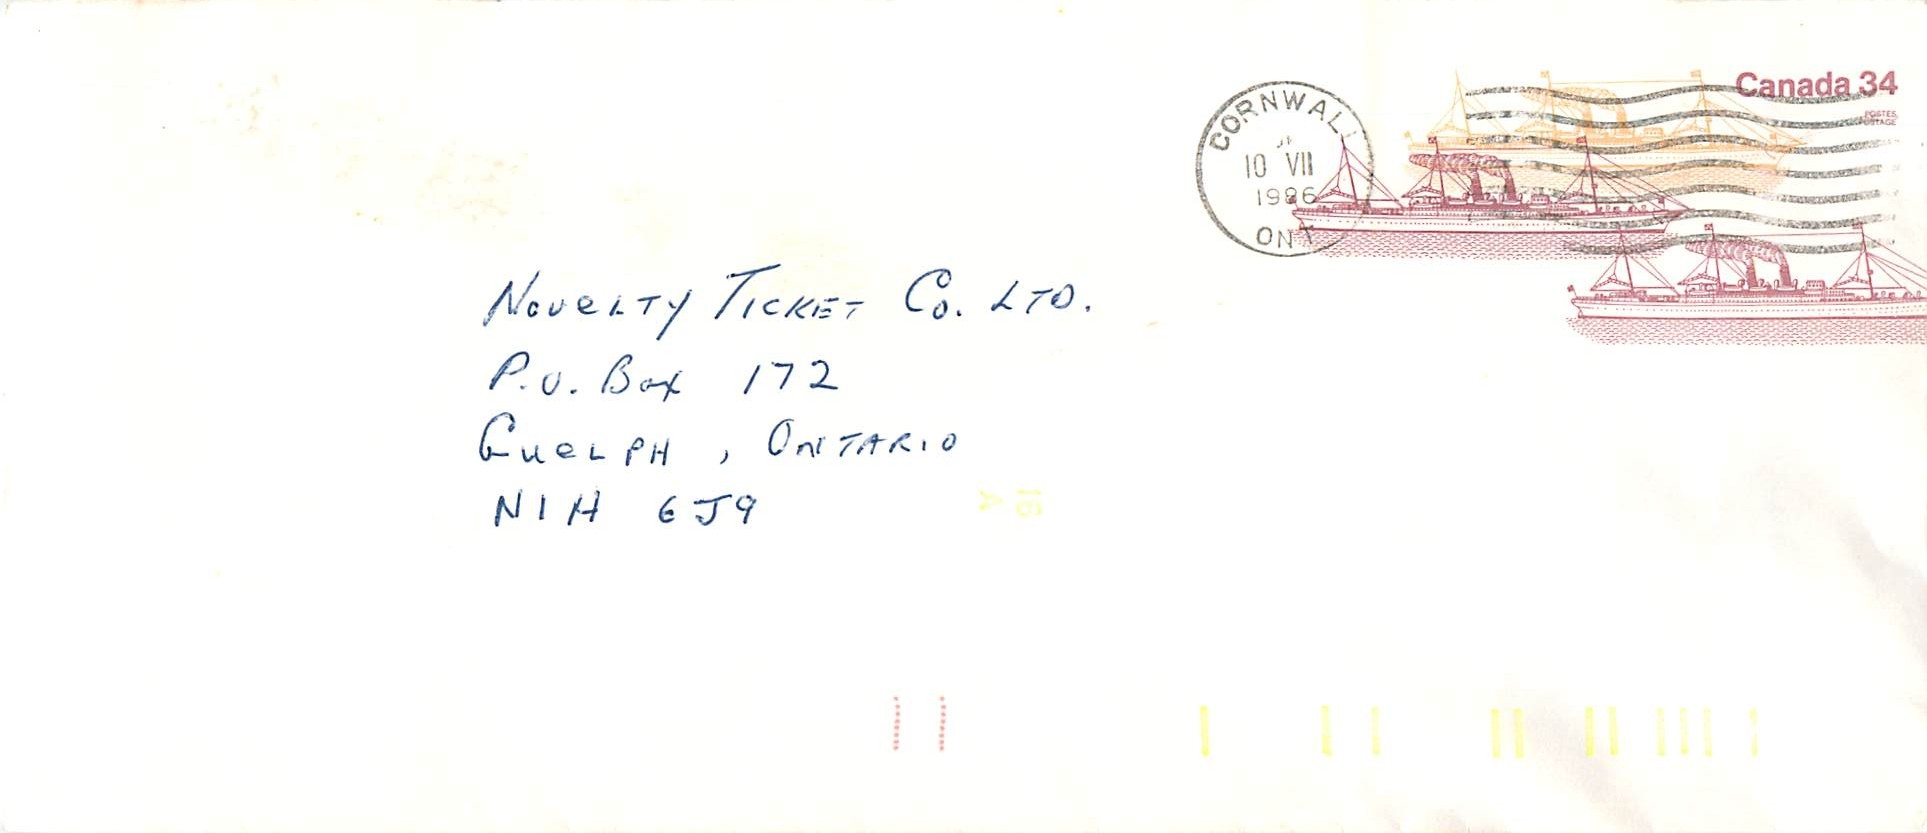 Canada 34
POSTES
POSTAGE
CORNWALL
10 VII
1986
ONT
Novelty Ticket Co. LTD.
P.O. Box 172
Guelph, Ontario
N1H 6J9
16
A